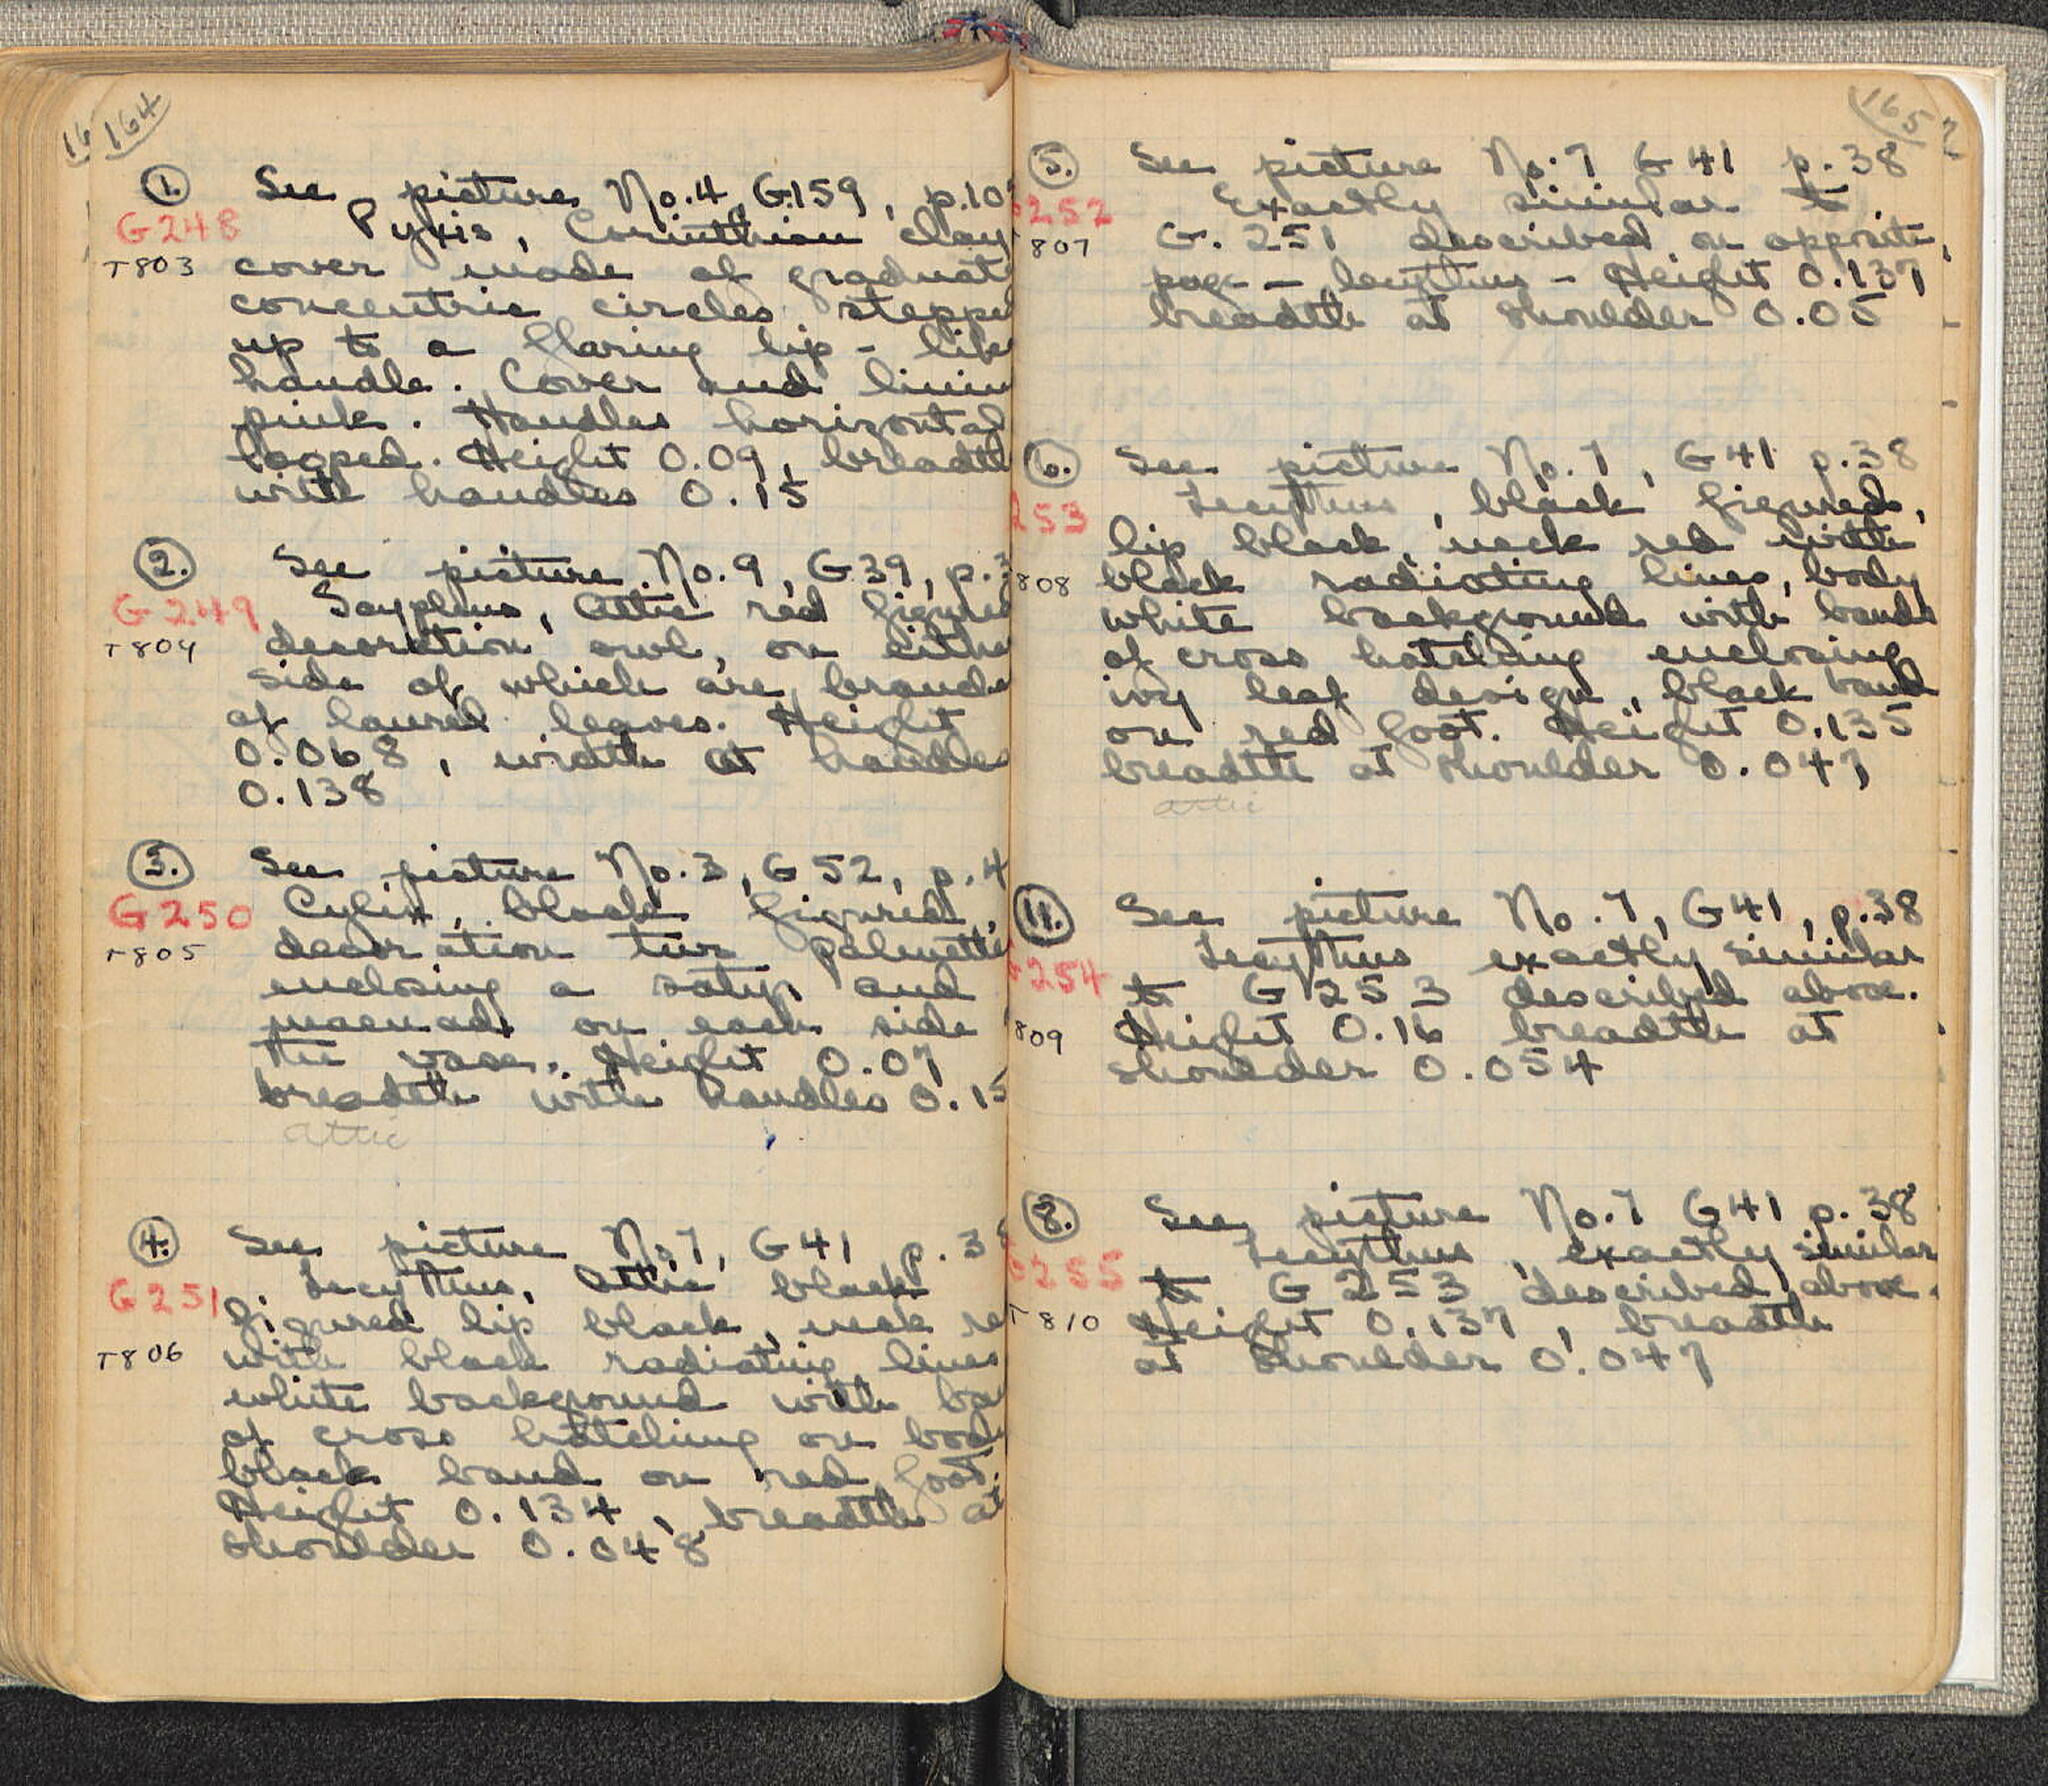 164
1. See picture No. 4, G159, p. 10
G248 Pyxis, Corinthian clay
T803 cover made of graduat
concentric circles steppe
up to a flaring lip - like
handle. Cover and linin
pink. Handles horizontal
looped. Height 0.09, breadth
with handles 0.15
2. See picture No. 9, G39, p. 3
G249 Scyphus, Attic red figured
T804 decoration owl, on eithe
side of which are branche
of laurel leaves. Height
0.068, width at handles
0.138
3. See picture No. 3, G52, p. 4
G250 Cylix, black figured,
T805 decoration two palmette
enclosing a satyr and
maenad on each side
the vase. Height 0.07
breadth with handles 0.15
attic
4. See picture No 7, G41 p. 38
G251 Lecythus, Attic black
figured lip black, neck re
T806 with black radiating lines
white background with ba
of cross hatching on bod
black band on red foot.
Height 0.134, breadth at
shoulder 0.048
165
5. See picture No. 7 G41 p. 38
252 Exactly similar to
807 G. 251 described on opposite
page - lecythus - Height 0.137
breadth at shoulder 0.05
6. See picture No. 7, G41 p. 38
253 Lecythus, black figured,
lip black, neck red with
808 black radiating lines, body
white background with bands
of cross hatching enclosing
ivy leaf design, black band
on red foot. Height 0.135
breadth at shoulder 0.047
attic
11. See picture No. 7, G41, p. 38
254 Lecythus exactly similar
to G 253 described above.
809 Height 0.16 breadth at
shoulder 0.054
8. See picture No. 7 G41 p. 38
G255 Lecythus, exactly similar
to G 253 described above.
T810 Height 0.137, breadth
at shoulder 0.047